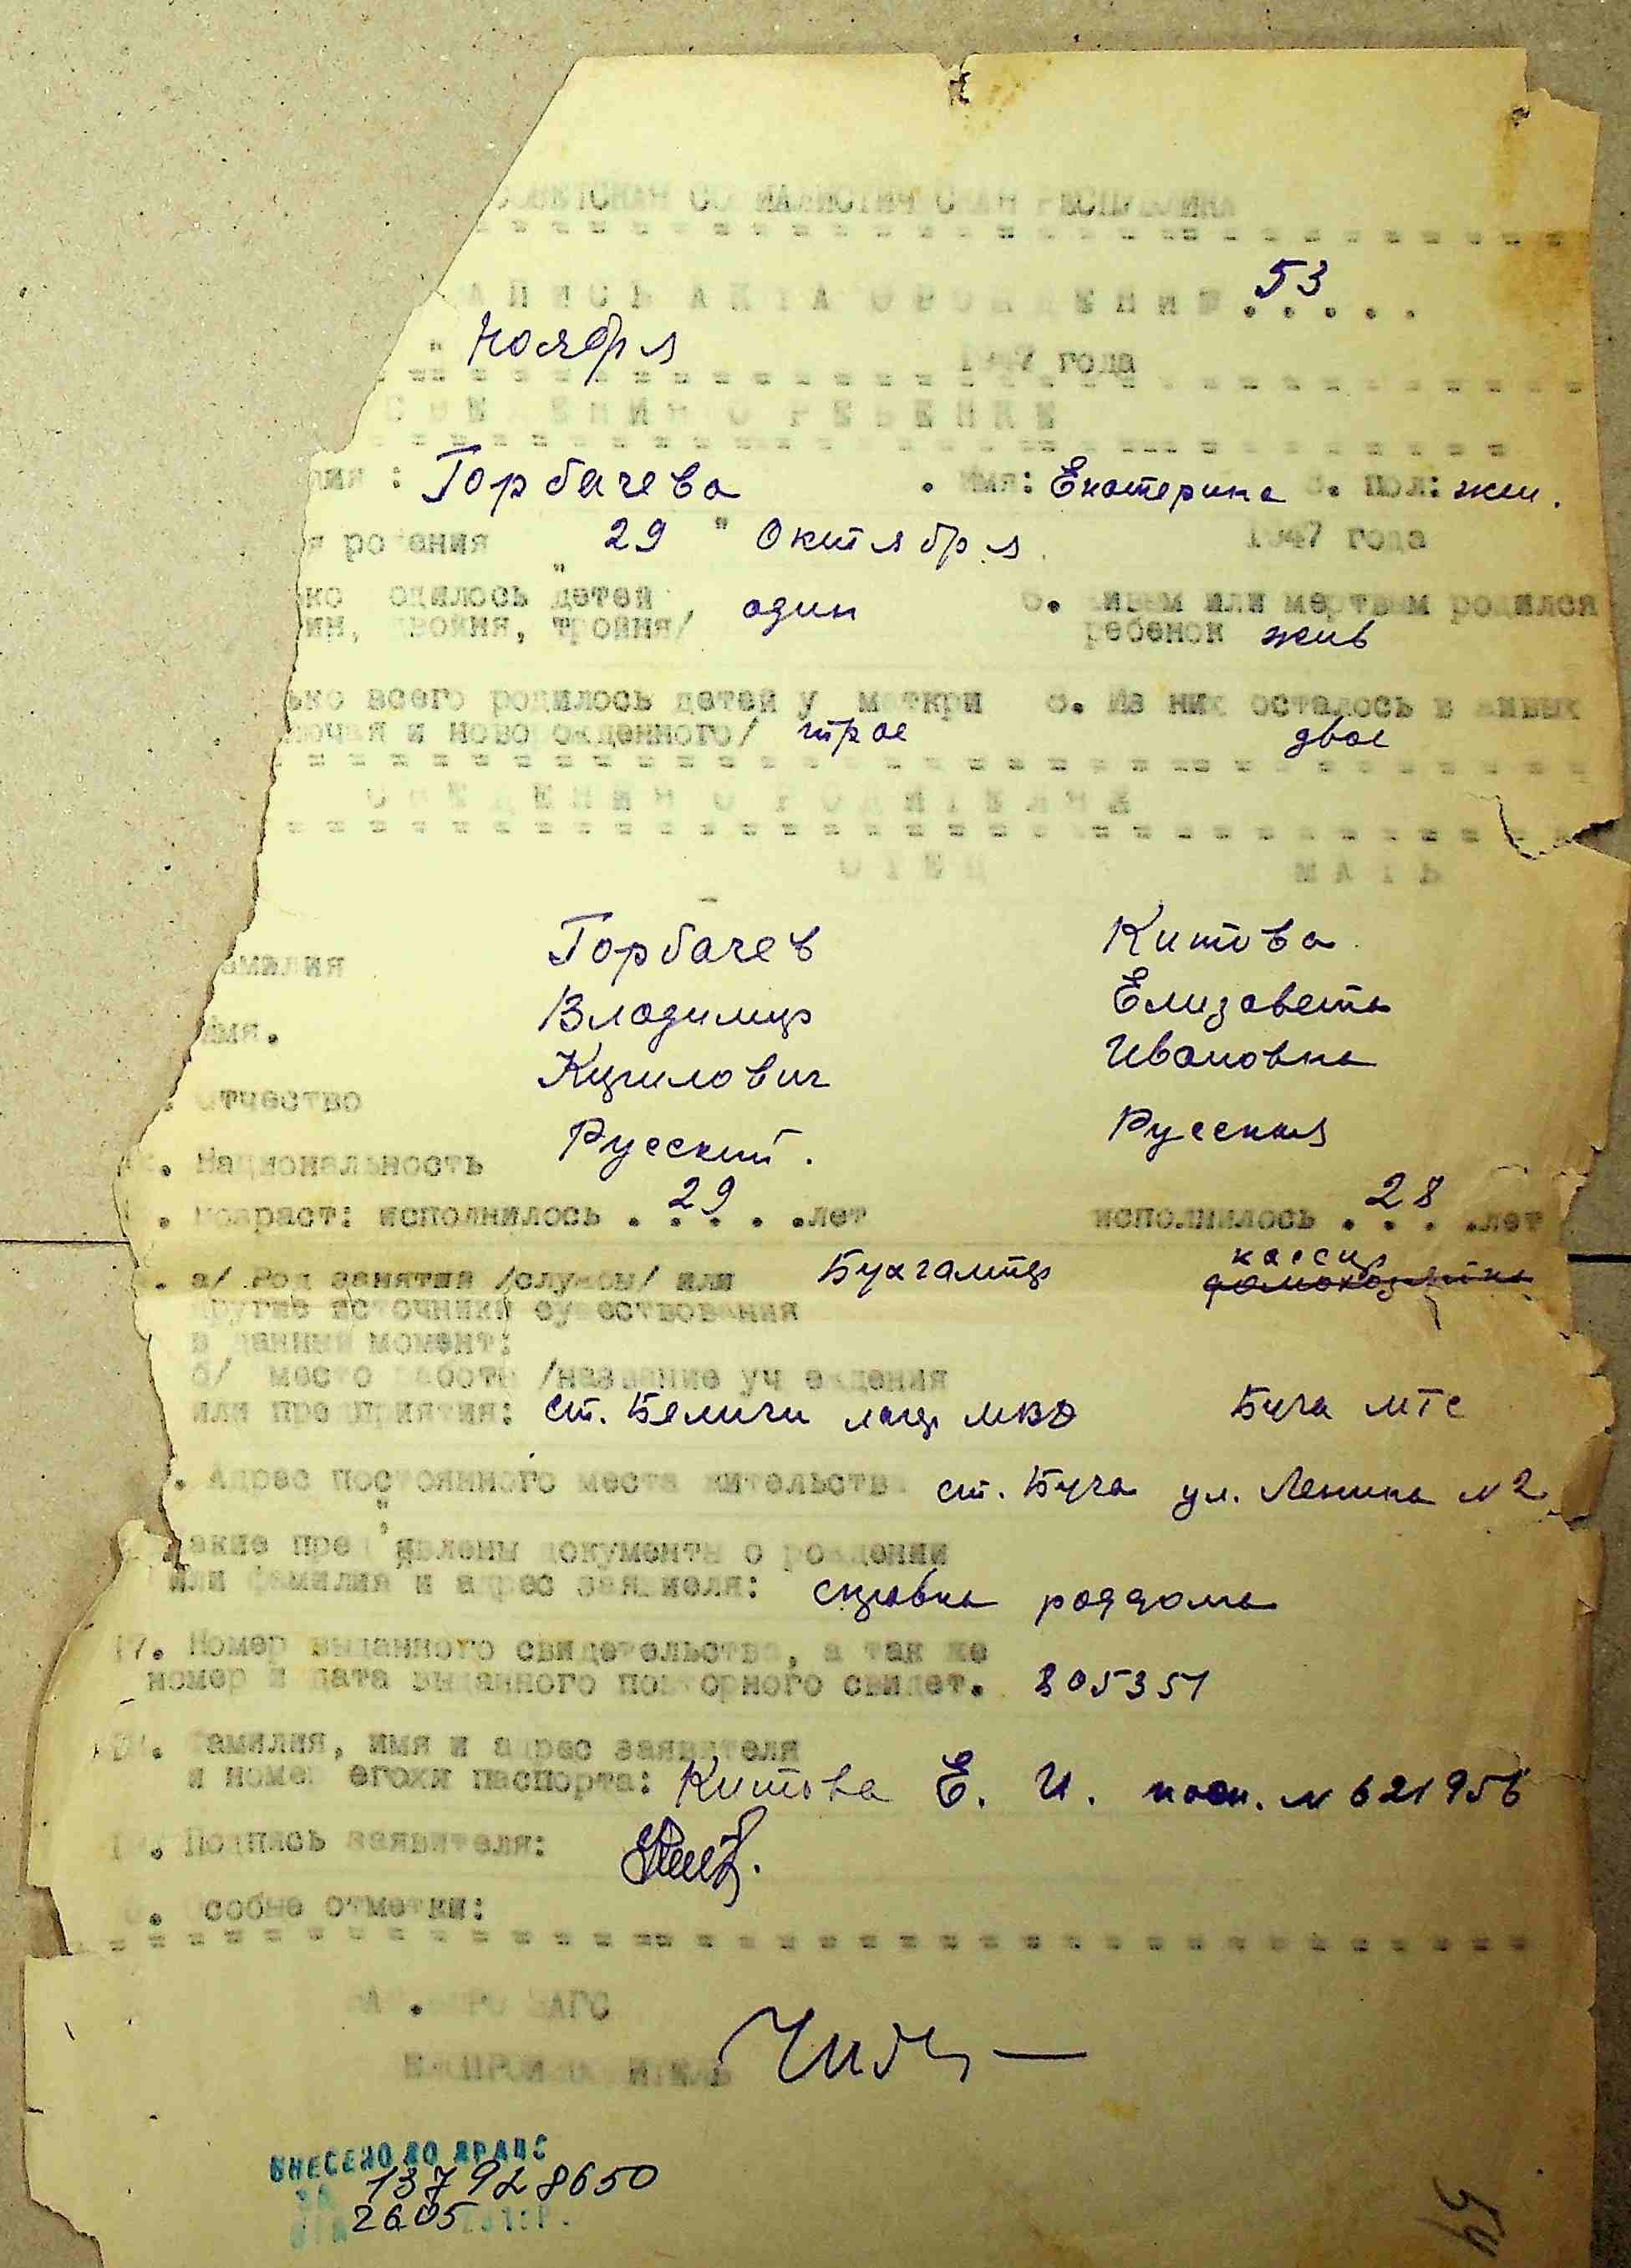 СОВЕТСКАЯ СОЦИАЛИСТИЧЕСКАЯ РЕСПУБЛИКА
АПИСЬ АКТА О РОЖДЕНИИ 53 . . . . .
" Ноября 1947 года
СВЕДЕНИЯ О РЕБЕНКЕ
лия : Горбачева . Имя: Екатерина 3. пол: жен.
я рождения 29 " Октября 1947 года
ко родилось детей один 6. живым или мертвым родился
ин, двойня, тройня/ ребенок жив
ько всего родилось детей у маткри 8. Из них осталось в живых
лючая и новорожденного/ трое двое
СВЕДЕНИЯ О РОДИТЕЛЯХ
ОТЕЦ МАТЬ
амилия Горбачев Китова
Имя. Владимир Елизавета
Отчество Кирилович Ивановна
. Национальность Русский. Русская
. Возраст: исполнилось . 29 . . .лет исполнилось . 28 . .лет
кассир
. а/ Род занятия /службы/ или Бухгалтер домохозяйка
другие источники существования
в данный момент:
б/ место работы /название учреждения
или предприятия: ст. Беличи лагр МВД Буча МТС
. Адрес постоянного места жительства ст. Буча ул. Ленина №2
акие пред"явлены документы о рождении
или фамилия и адрес заявителя: справка роддома
17. Номер выданного свидетельства, а так же
номер и дата выданного повторного свидет. 805351
. Фамилия, имя и адрес заявителя
и номер егохи паспорта: Китова Е. И. посп. №621956
. Подпись заявителя:
. собые отметки:
ЗАВ. БЮРО ЗАГС
ДЕЛПРОИЗВОДИТЕЛЬ
ВНЕСЕНО ДО ДРАЦС
ЗА 13792 8650
2605
54